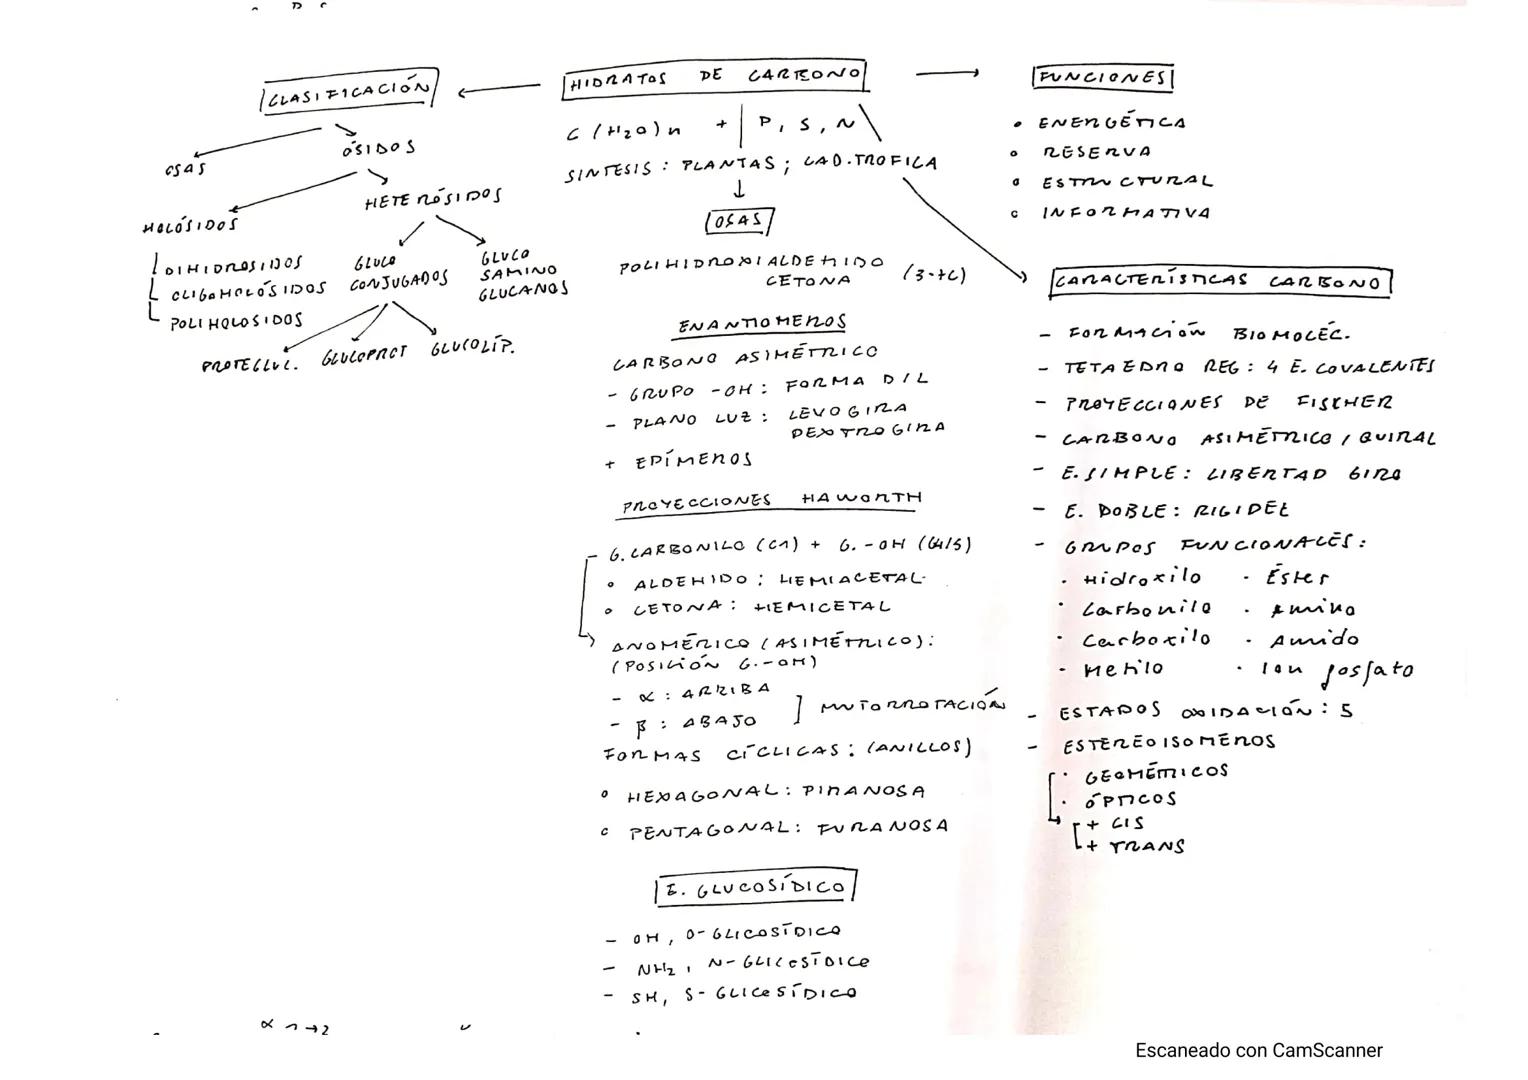 CLASIFICACIÓN
OSAS
ÓSIDOS
HOLÓSIDOS
HETERÓSIDOS
DIHIDROSIDOS
OLIGOHOLÓSIDOS
POLIHOLOSIDOS
GLUCO
CONJUGADOS
GLUCO
SAMINO
GLUCANOS
PROTEGLUC.
GLUCOPROT
GLUCOLÍP.
HIDRATOS DE CARBONO
C(H2O)n + P, S, N
SINTESIS: PLANTAS; CAD.TROFICA
OSAS
POLIHIDROXIALDEHIDO
CETONA (3-7C)
ENANTIOMEROS
CARBONO ASIMÉTRICO
- GRUPO -OH: FORMA D/L
- PLANO LUZ: LEVOGIRA
DEXTROGIRA
+ EPÍMEROS
PROYECCIONES HAWORTH
- G. CARBONILO (C1) + G. -OH (C4/5)
• ALDEHIDO: HEMIACETAL
• CETONA: HEMICETAL
ANOMÉRICO (ASIMÉTRICO):
(POSICIÓN G.-OH)
- α: ARRIBA
- β: ABAJO
MUTORROTACIÓN
FORMAS CÍCLICAS: (ANILLOS)
• HEXAGONAL: PIRANOSA
• PENTAGONAL: FURANOSA
E. GLUCOSÍDICO
- OH, O-GLICOSÍDICO
- NH2, N-GLICOSÍDICO
- SH, S-GLICOSÍDICO
FUNCIONES
• ENERGÉTICA
• RESERVA
• ESTRUCTURAL
• INFORMATIVA
CARACTERÍSTICAS CARBONO
- FORMACIÓN BIOMOLÉC.
- TETAEDRO REG: 4 E. COVALENTES
- PROYECCIONES DE FISCHER
- CARBONO ASIMÉTRICO / QUIRAL
- E. SIMPLE: LIBERTAD GIRO
- E. DOBLE: RIGIDEZ
- GRUPOS FUNCIONALES:
· Hidroxilo · Éster
· Carbonilo · Amino
· Carboxilo · Amido
· Metilo · Ion fosfato
- ESTADOS OXIDACIÓN: 5
- ESTEREOISOMEROS
· GEOMÉTRICOS
· ÓPTICOS
+ CIS
+ TRANS
α 1→2
Escaneado con CamScanner